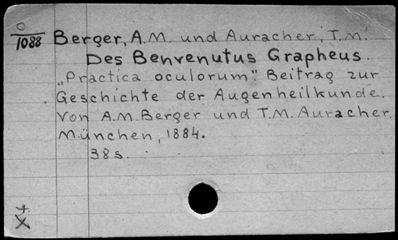 O
1088
Berger, A.M. und Auracher, T.M.
Des Benvenutus Grapheus.
„Practica oculorum". Beitrag zur
Geschichte der Augenheilkunde.
Von A.M. Berger und T.M. Auracher.
München, 1884.
38 s.